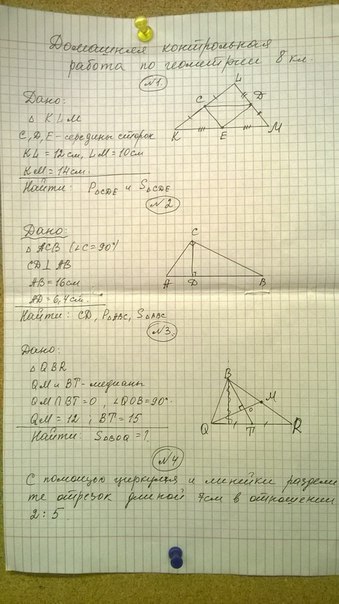 Домашняя контрольная
работа по геометрии 8 кл.
№1.
Дано:
△ KLM
C, D, E - середины сторон
KL = 12 см, LM = 10 см
KM = 14 см.
Найти: P△CDE и S△CDE
L
C
D
K
E
M
№2
Дано:
△ ACB (∠C = 90°)
CD ⊥ AB
AB = 16 см
AD = 6,4 см.
Найти: CD, P△ABC, S△ABC
C
A
D
B
№3.
Дано:
△ QBR
QM и BT - медианы
QM ∩ BT = O, ∠QOB = 90°
QM = 12, BT = 15
Найти: S△BOQ = ?
B
M
O
Q
T
R
№4
С помощью циркуля и линейки раздели
те отрезок длиной 7см в отношении
2 : 5